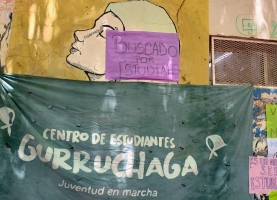 BUSCADO
POR
ESTUDIAR
CENTRO DE ESTUDIANTES
GURRUCHAGA
Juventud en marcha